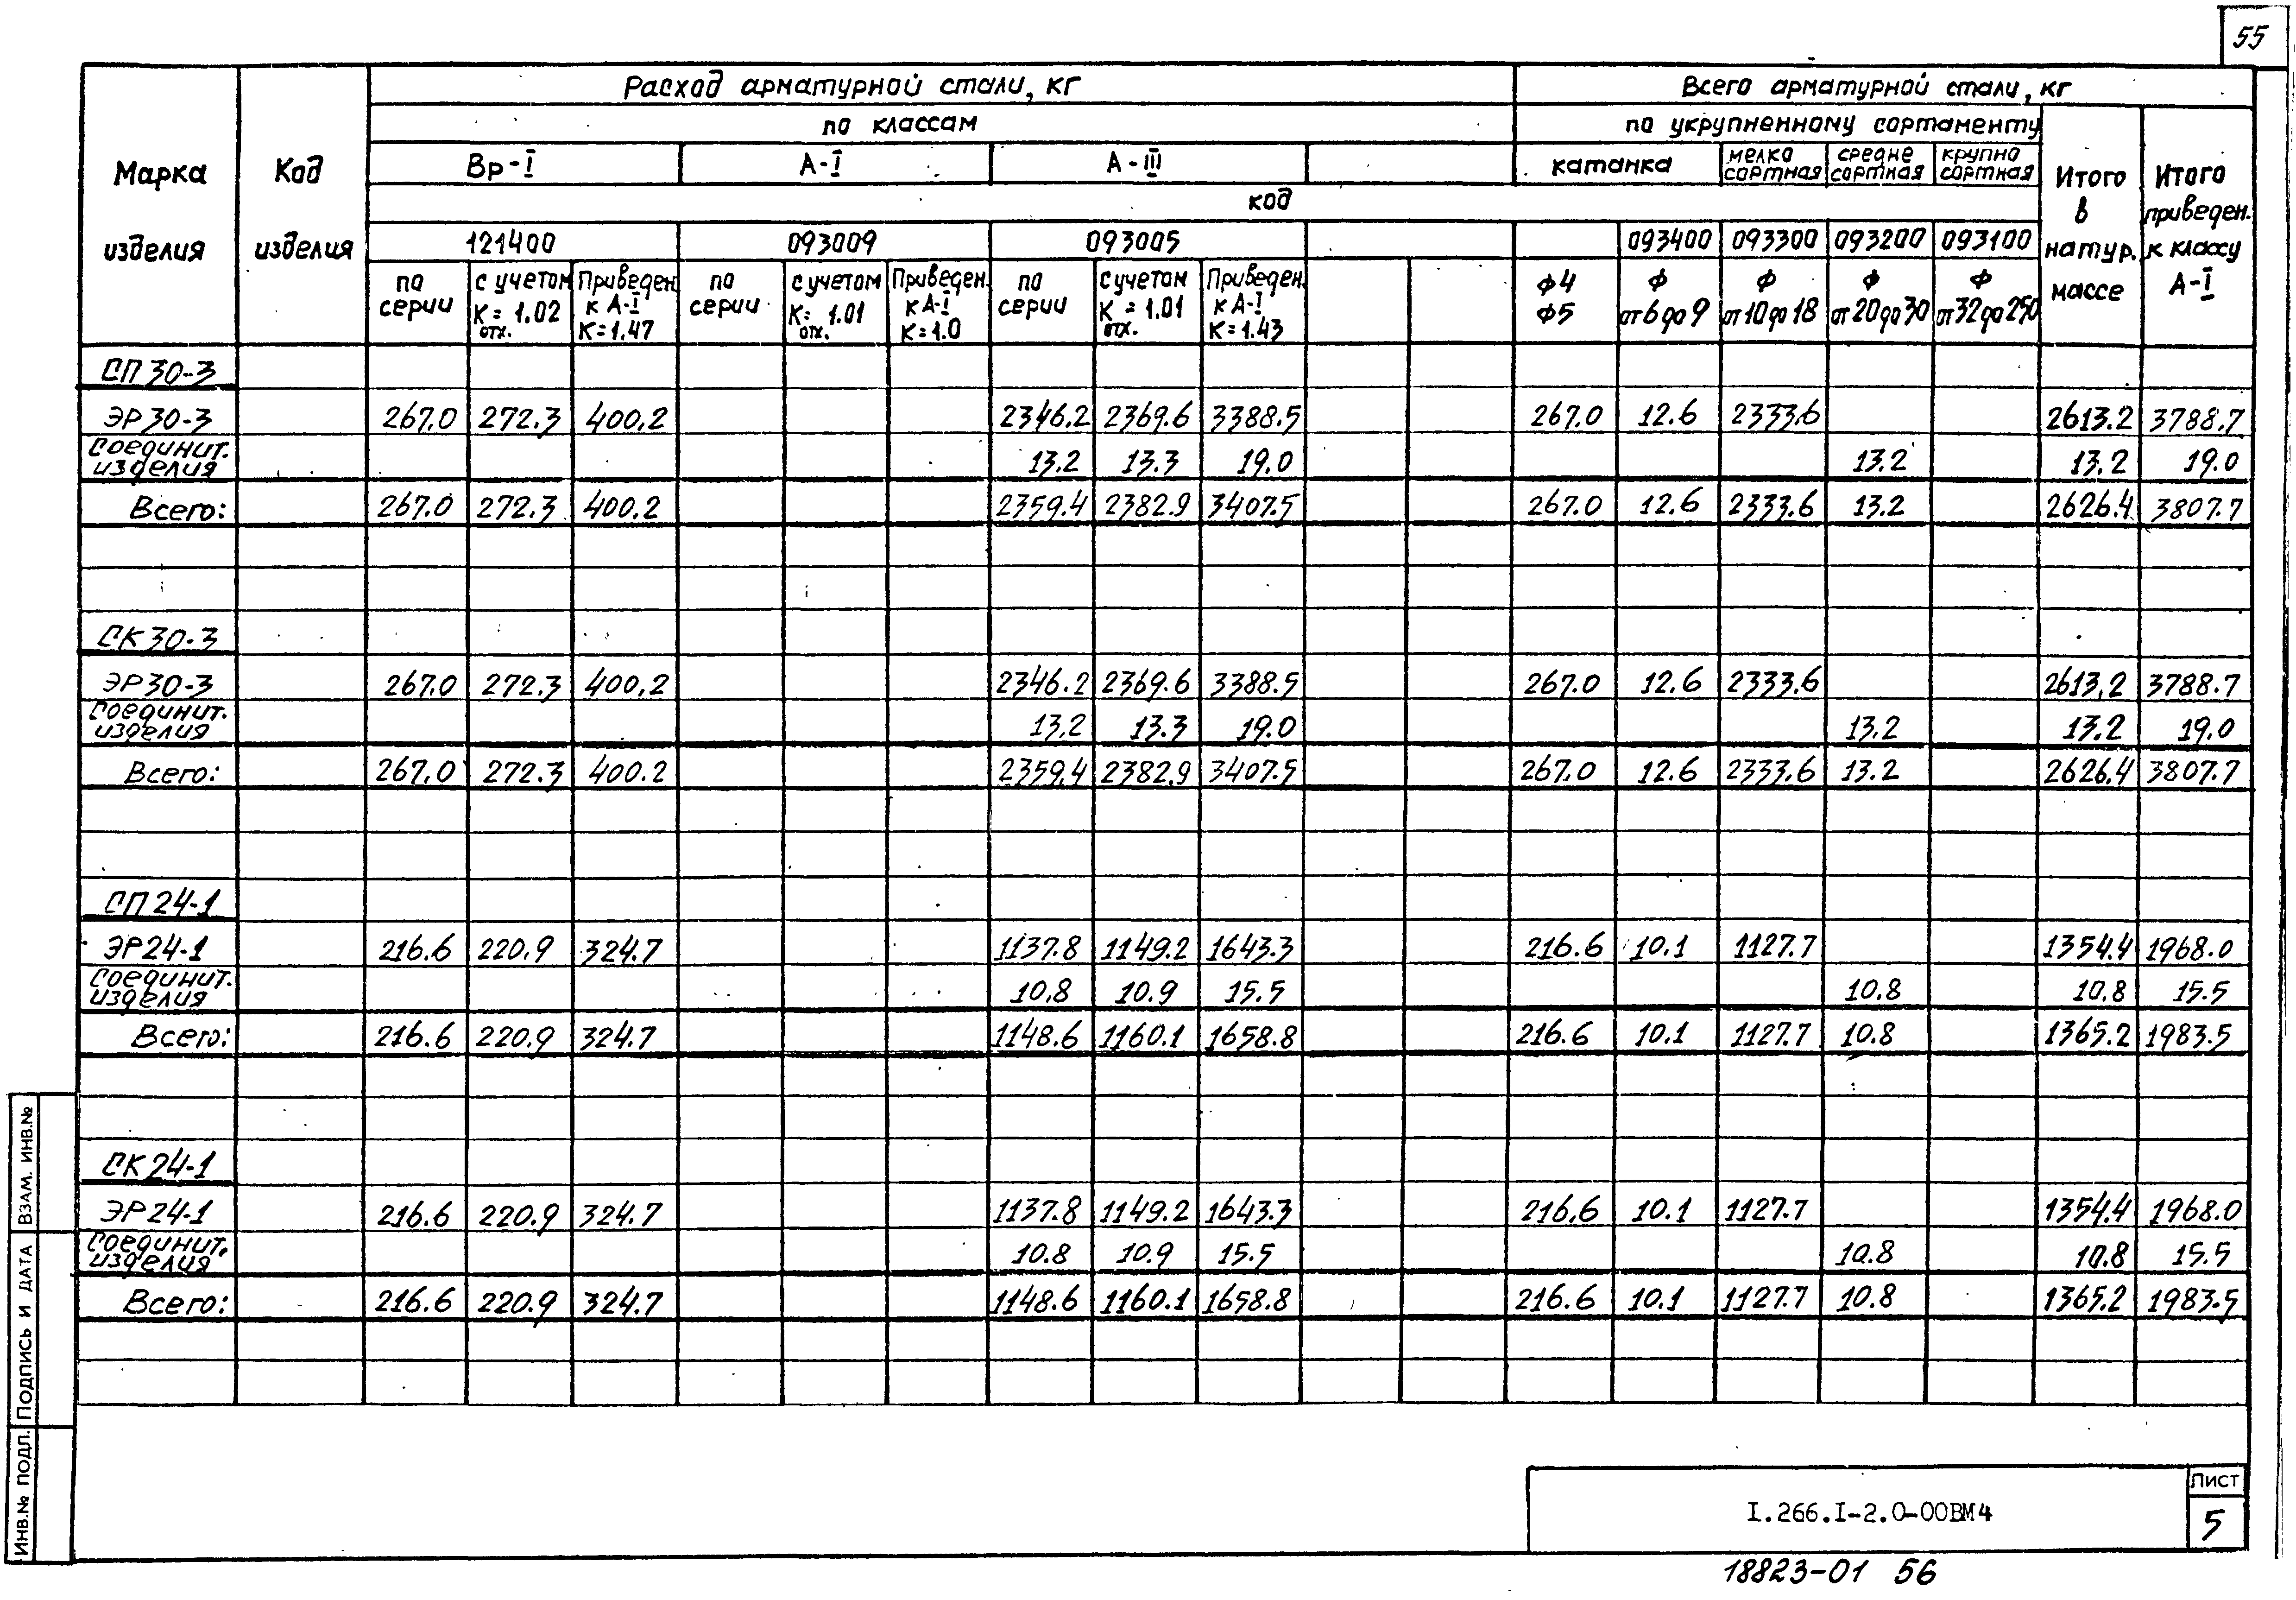 55
Расход арматурной стали, кг Всего арматурной стали, кг
по классам по укрупненному сортаменту
Марка изделия Код изделия Вр-I А-I А-III катанка мелко сортная средне сортная крупно сортная Итого в натур. массе Итого приведен. к классу А-I
код
121400 093009 093005 093400 093300 093200 093100
по серии с учетом Котх.=1.02 Приведен. к А-I К=1.47 по серии с учетом Котх.=1.01 Приведен. к А-I К=1.0 по серии с учетом Котх.=1.01 Приведен. к А-I К=1.43 Ф4 Ф5 Ф от 6 до 9 Ф от 10 до 18 Ф от 20 до 30 Ф от 32 до 250
СП 30-3
ЭР 30-3 267.0 272.3 400.2 2346.2 2369.6 3388.5 267.0 12.6 2333.6 2613.2 3788.7
Соединит. изделия 13.2 13.3 19.0 13.2 13.2 19.0
Всего: 267.0 272.3 400.2 2359.4 2382.9 3407.5 267.0 12.6 2333.6 13.2 2626.4 3807.7
СК 30-3
ЭР 30-3 267.0 272.3 400.2 2346.2 2369.6 3388.5 267.0 12.6 2333.6 2613.2 3788.7
Соединит. изделия 13.2 13.3 19.0 13.2 13.2 19.0
Всего: 267.0 272.3 400.2 2359.4 2382.9 3407.5 267.0 12.6 2333.6 13.2 2626.4 3807.7
СП 24-1
ЭР 24-1 216.6 220.9 324.7 1137.8 1149.2 1643.3 216.6 10.1 1127.7 1354.4 1968.0
Соединит. изделия 10.8 10.9 15.5 10.8 10.8 15.5
Всего: 216.6 220.9 324.7 1148.6 1160.1 1658.8 216.6 10.1 1127.7 10.8 1365.2 1983.5
СК 24-1
ЭР 24-1 216.6 220.9 324.7 1137.8 1149.2 1643.3 216.6 10.1 1127.7 1354.4 1968.0
Соединит. изделия 10.8 10.9 15.5 10.8 10.8 15.5
Всего: 216.6 220.9 324.7 1148.6 1160.1 1658.8 216.6 10.1 1127.7 10.8 1365.2 1983.5
ИНВ.№ ПОДЛ. ПОДПИСЬ И ДАТА ВЗАМ. ИНВ.№
I.266.I-2.0-00ВМ4
Лист
5
18823-01 56